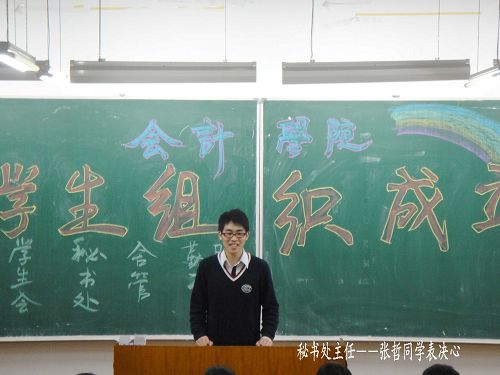 会計學院
学生组织成立
学生会
秘书处
舍管
秘书处主任——张哲同学表决心